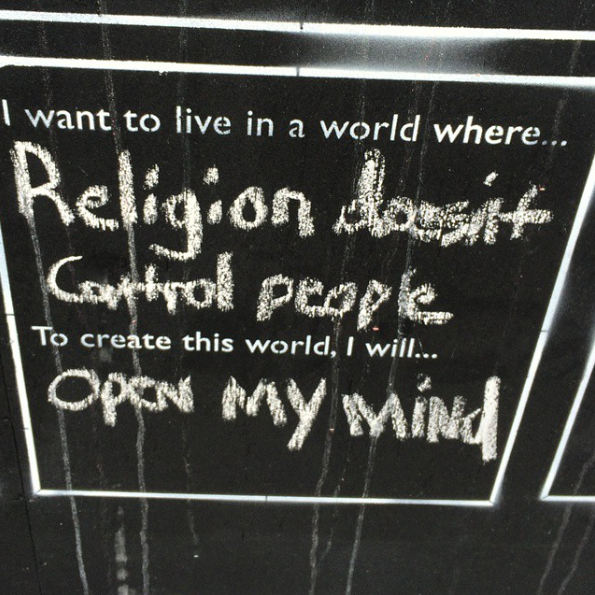 I want to live in a world where...
Religion doesn't
Control people
To create this world, I will...
OPEN MY MiNd